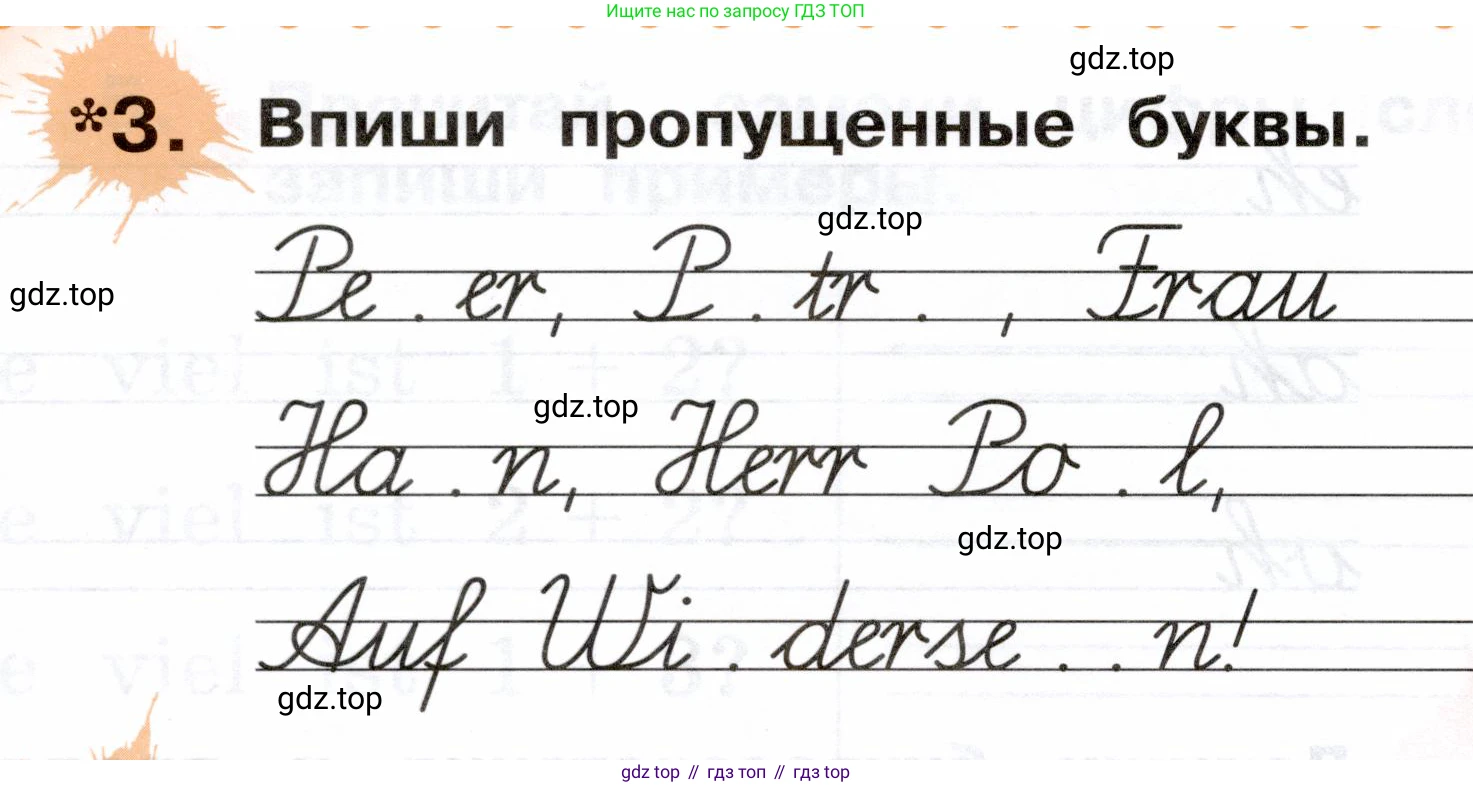 Ищите нас по запросу ГДЗ ТОП
gdz.top
*3. Впиши пропущенные буквы.
gdz.top
Pe . er, P . tr . , Frau
gdz.top
gdz.top
Ha . n, Herr Bo . l,
gdz.top
Auf Wi . derse . . n!
gdz.top
gdz top // гдз топ // гдз top